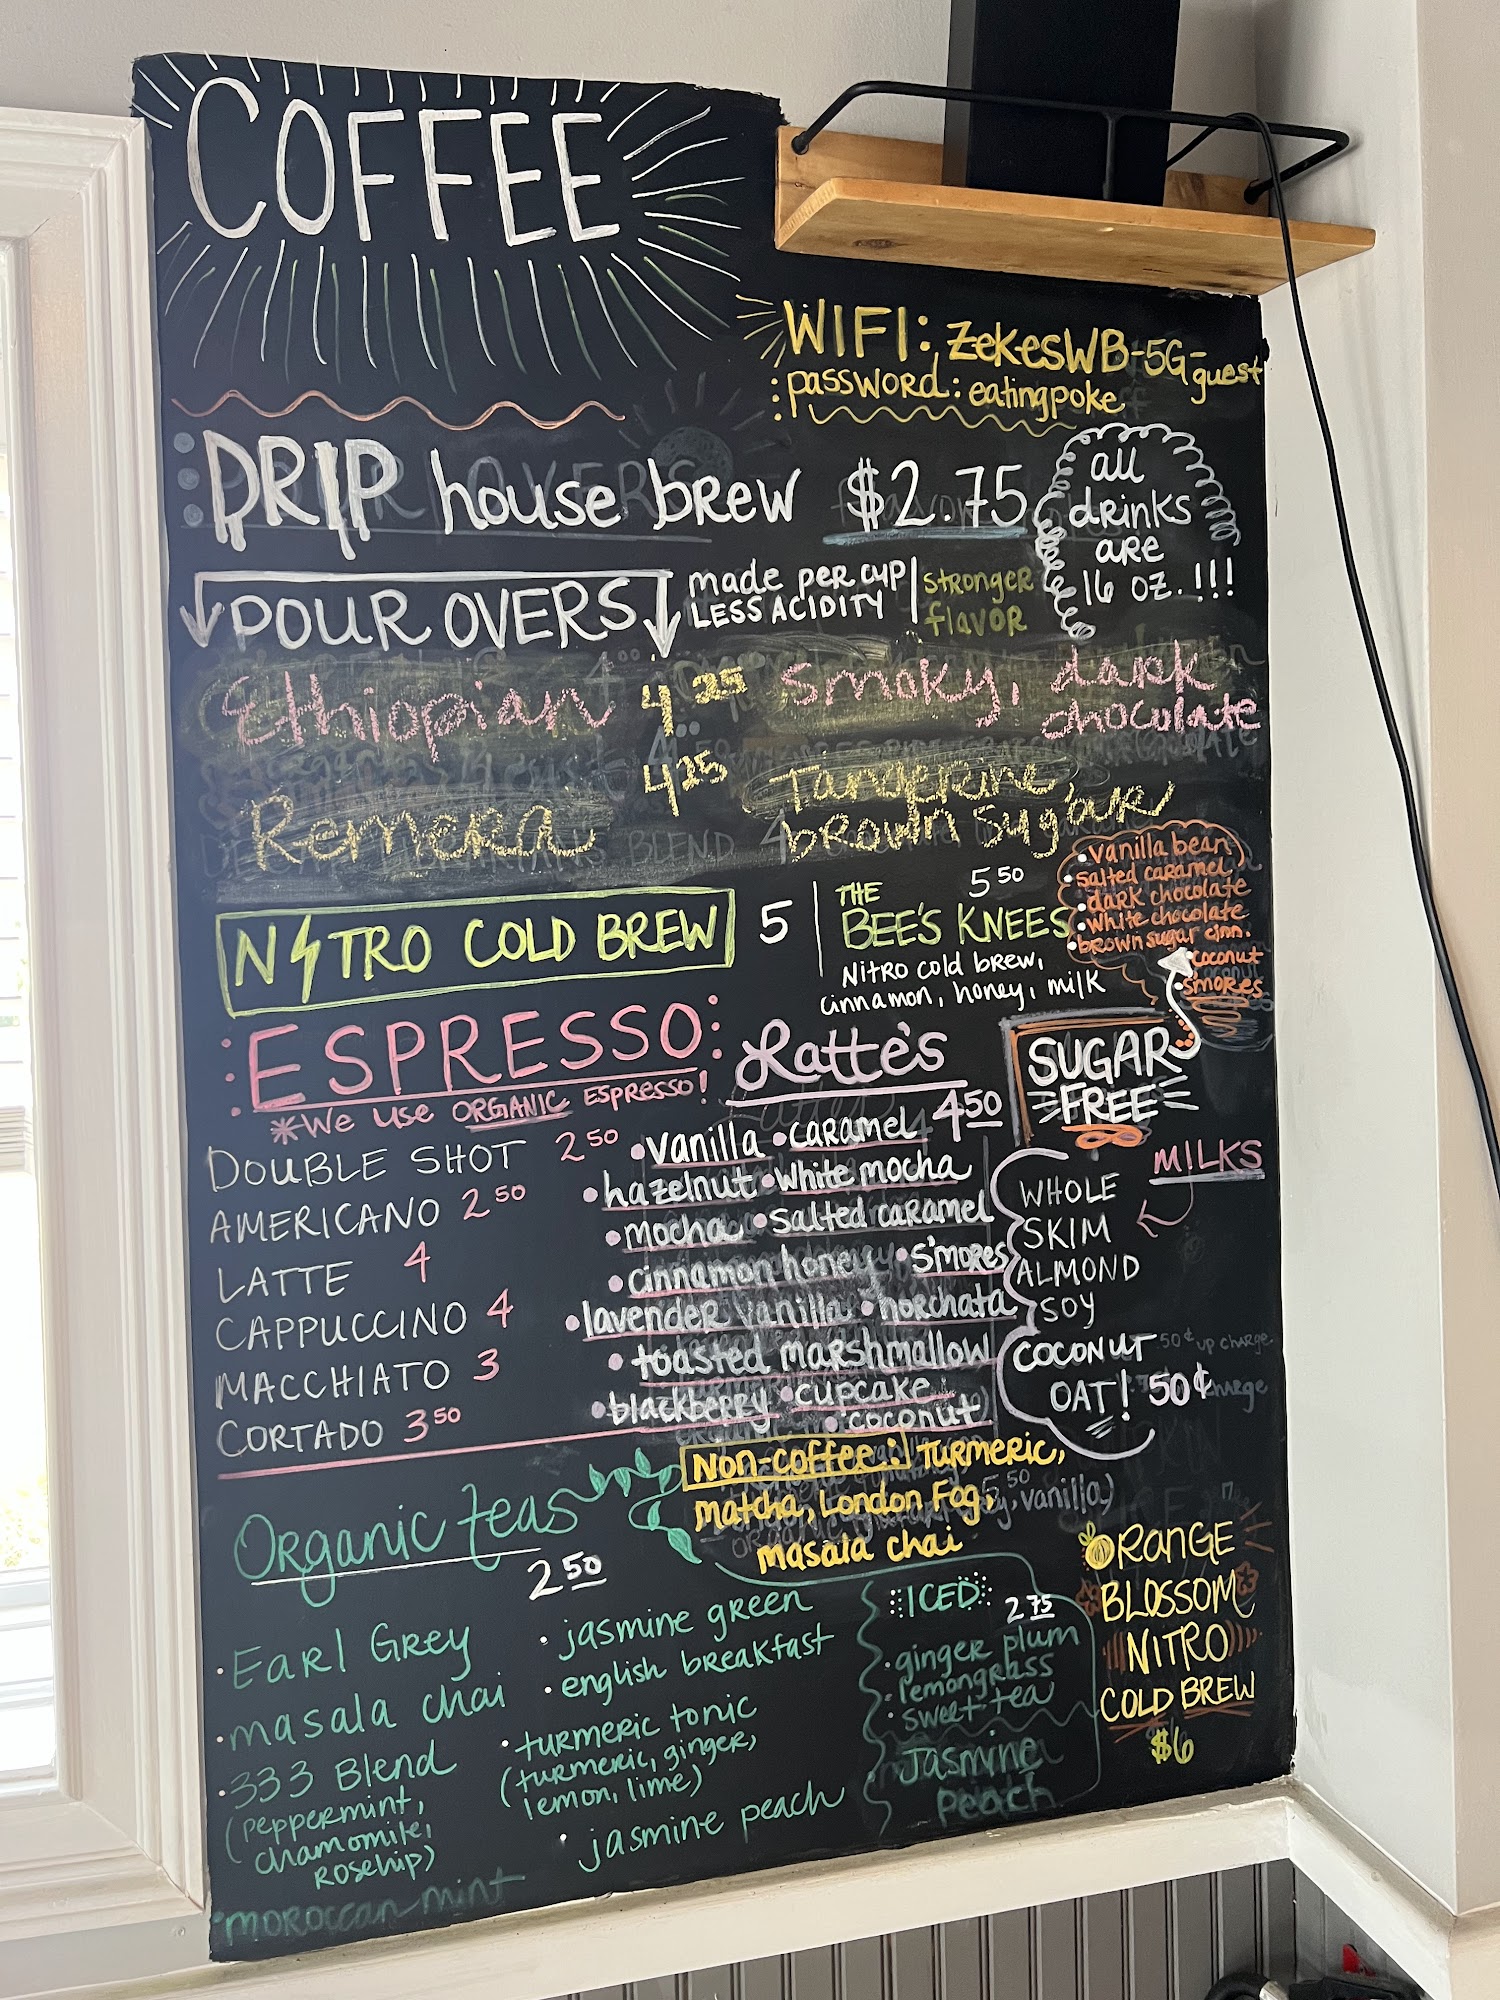 COFFEE
WIFI: ZekesWB-5G-guest
password: eatingpoke
DRIP house brew $2.75
all
drinks
are
16 oz.!!!
POUR OVERS
made per cup
LESS ACIDITY
stronger
flavor
Ethiopian 4.25 Smoky, dark
chocolate
Remera 4.25 Tangerine,
brown sugar
NITRO COLD BREW 5
THE 5.50
BEE'S KNEES
Nitro cold brew,
cinnamon, honey, milk
• vanilla bean
• salted caramel
• dark chocolate
• white chocolate
• brown sugar cinn.
• coconut
• smores
SUGAR
FREE
ESPRESSO
*We use ORGANIC ESPRESSO!
DOUBLE SHOT 2.50
AMERICANO 2.50
LATTE 4
CAPPUCCINO 4
MACCHIATO 3
CORTADO 3.50
Latte's
4.50
• vanilla • caramel
• hazelnut • white mocha
• mocha • salted caramel
• cinnamon honey • s'mores
• lavender vanilla • horchata
• toasted marshmallow
• blackberry • cupcake
• coconut
MILKS
WHOLE
SKIM
ALMOND
SOY
COCONUT 50¢ up charge
OAT! 50¢
Non-coffee: Turmeric,
matcha, London Fog,
masala chai
Organic teas
2.50
• Earl Grey
• masala chai
• 333 Blend
(peppermint,
chamomile,
rosehip)
• moroccan mint
• jasmine green
• english breakfast
• turmeric tonic
(turmeric, ginger,
lemon, lime)
• jasmine peach
ICED 2.75
• ginger plum
• lemongrass
• sweet tea
Jasmine
Peach
ORANGE
BLOSSOM
NITRO
COLD BREW
$6